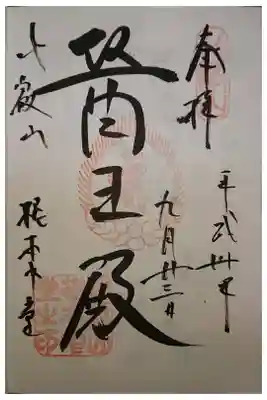 奉拝
平成卅年
九月廿三日
醫王殿
比叡山 根本中堂